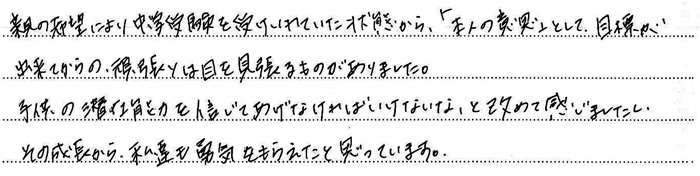 親の希望により中学受験を受けいれていた状態から、「本人の意思」として、目標が
出来てからの、頑張りは目を見張るものがありました。
子供の潜在能力を信じてあげなければいけないな、と改めて感じましたし、
その成長から、私達も勇気をもらえたと思っています。